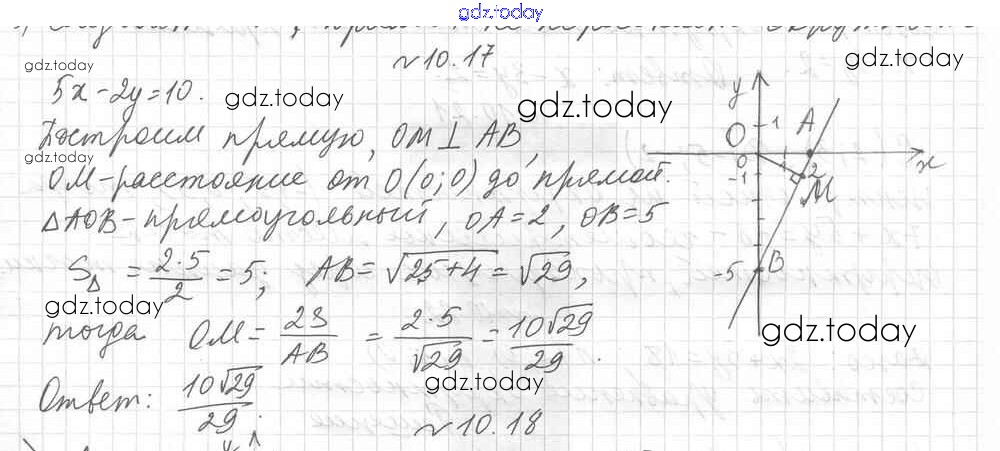 gdz.today
№10.17
gdz.today
gdz.today
5x - 2y = 10.
gdz.today
gdz.today
Построим прямую, OM ⊥ AB,
gdz.today
OM - расстояние от O(0;0) до прямой.
△AOB - прямоугольный, OA = 2, OB = 5
S△ = 2·5/2 = 5; AB = √25+4 = √29,
gdz.today
тогда OM = 2S/AB = 2·5/√29 = 10√29/29.
gdz.today
Ответ: 10√29/29.
y
O
1
A
0
2
x
-1
M
-5
B
gdz.today
№10.18